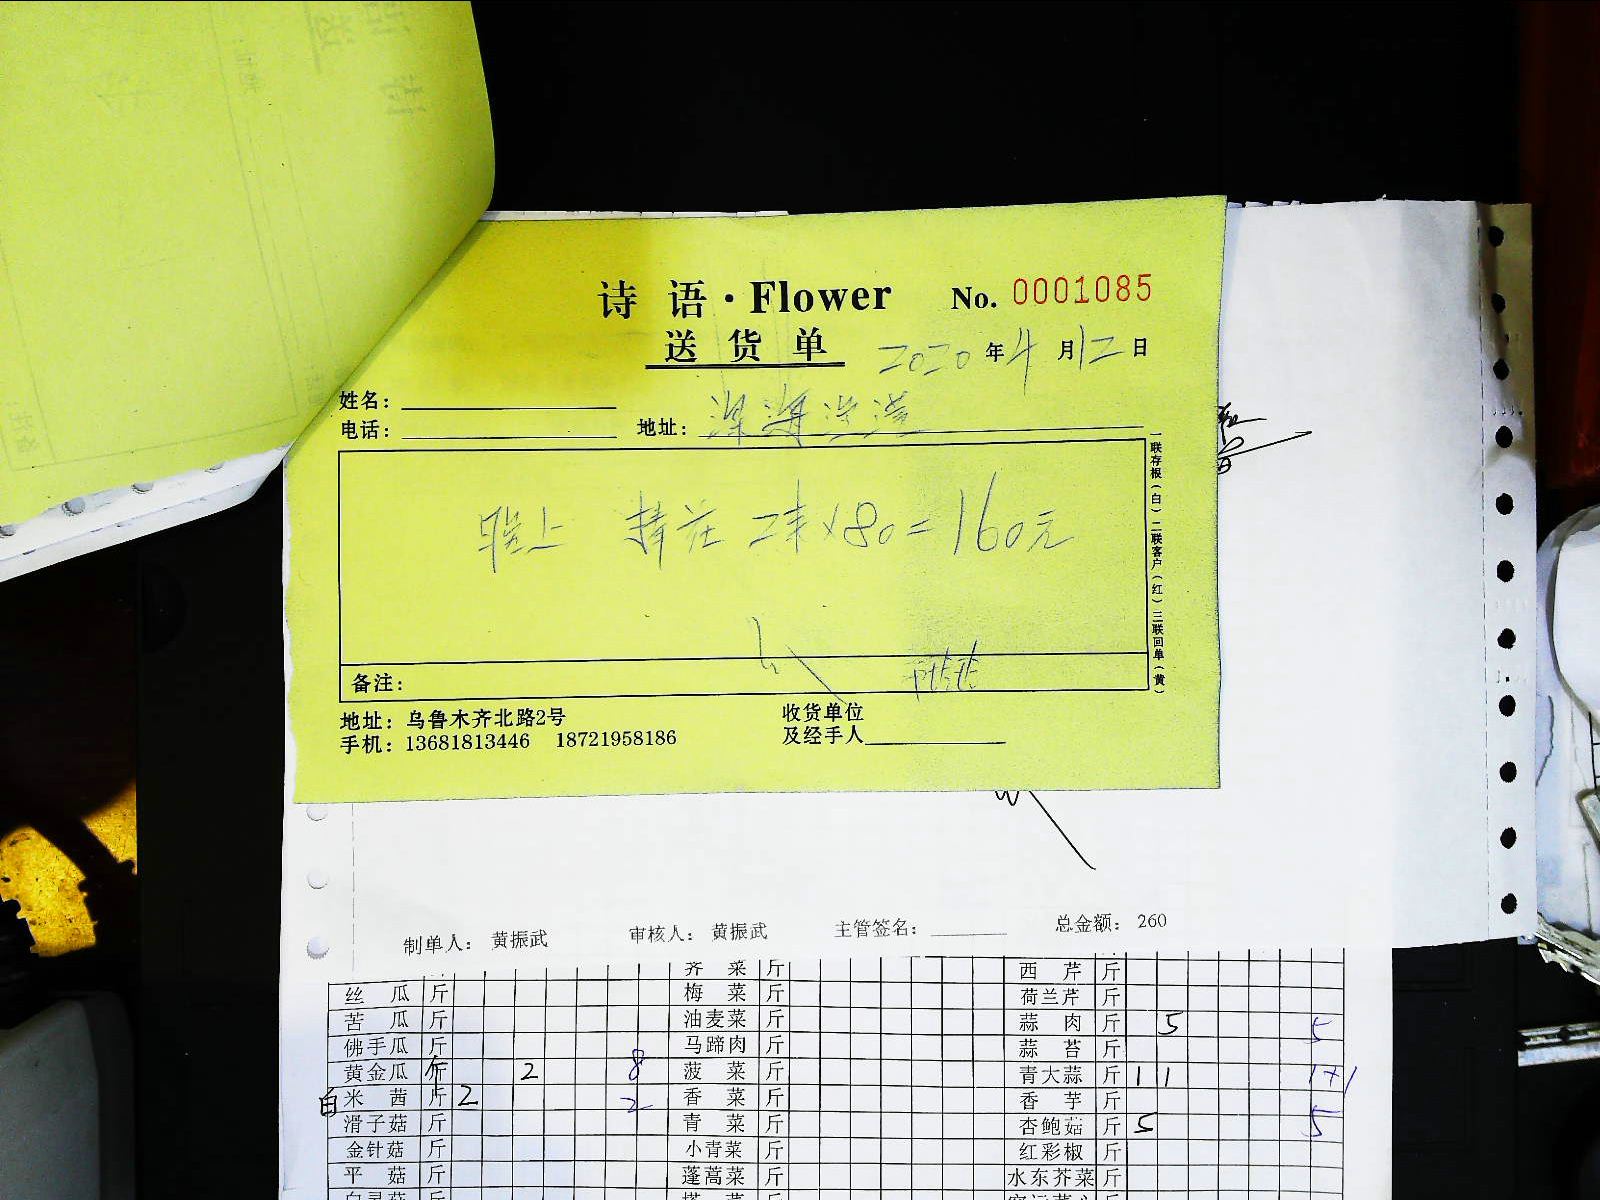 诗语·Flower No. 0001085
送货单 2020年4月12日
姓名:
电话: 地址:
插花 2束×80=160元
一联存根(白)二联客户(红)三联回单(黄)
备注:
地址: 乌鲁木齐北路2号 收货单位
手机: 13681813446 18721958186 及经手人
制单人: 黄振武 审核人: 黄振武 主管签名: 总金额: 260
齐菜 斤 西芹 斤
丝瓜 斤 梅菜 斤 荷兰芹 斤
苦瓜 斤 油麦菜 斤 蒜肉 斤 5 5
佛手瓜 斤 马蹄肉 斤 蒜苔 斤
黄金瓜 斤 2 8 菠菜 斤 青大蒜 斤 1 1 1+1
白米茜 斤 2 2 香菜 斤 香芋 斤
滑子菇 斤 青菜 斤 杏鲍菇 斤 5 5
金针菇 斤 小青菜 斤 红彩椒 斤
平菇 斤 蓬蒿菜 斤 水东芥菜 斤